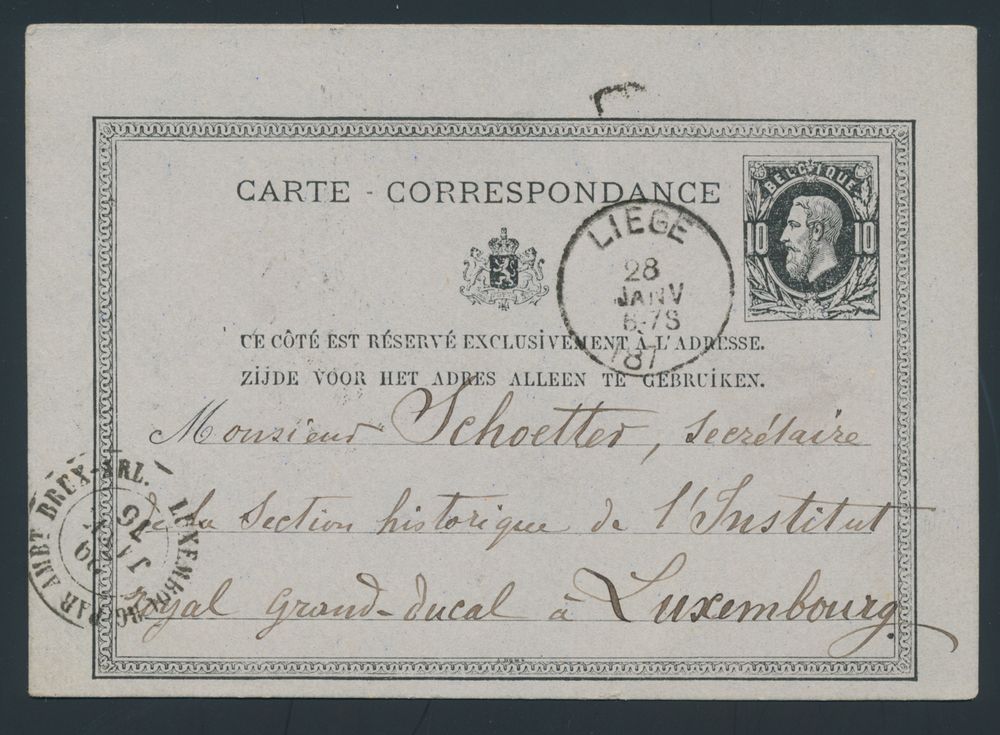 BELGIQUE
10 10
CARTE - CORRESPONDANCE
LIEGE
28
JANV
6-7S
187
CE CÔTÉ EST RÉSERVÉ EXCLUSIVEMENT À L'ADRESSE.
ZIJDE VOOR HET ADRES ALLEEN TE GEBRUIKEN.
Monsieur Schoetter, secrétaire
de la Section historique de l'Institut
royal grand-ducal à Luxembourg.
LUXEMBOURG PAR AMBT BRUX-ARL.